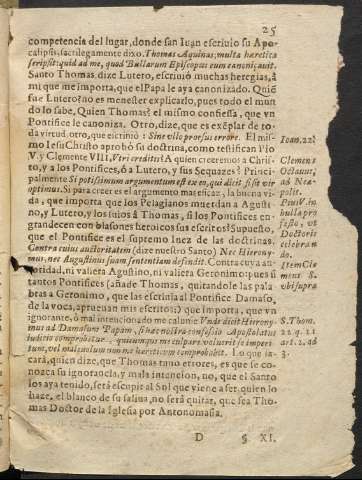 25
competencia del lugar, donde san Iuan escriuio su Apo-
calipsis, sacrilegamente dixo. Thomas Aquinas, multa hæretica
scripsit: quid ad me, quod Bullarum Episcopus eum canonizauit.
Santo Thomas, dize Lutero, escriuió muchas heregias, à
mi que me importa, que el Papa le aya canonizado. Quié
fue Lutero? no es menester explicarlo, pues todo el mun
do lo sabe, Quien Thomas? el mismo confiessa, que vn
Pontifice le canoniza. Otro, dize, que es exéplar de to-
da virtud, otro, que escriuiò: Sine vllo prorsus errore. El mis-
mo Iesu Christo aprobò su doctrina, como testifican Pio
V. y Clemente VIII, Vtri creditis? A quien creeremos a Chris-
to, y a los Pontifices, ò a Lutero, y sus Sequazes? Princi-
palmente Si potissimum argumentum est ex eo, qui dicit si sit vir
optimus. Si para creer es el argumento mas eficaz, la buena vi-
da, que importa que los Pelagianos muerdan a Agusti-
no, y Lutero, y los suios à Thomas, si los Pontifices en-
grandecen con blasones heroicos sus escritos? Supuesto,
que el Pontifice es el supremo Iuez de las doctrinas.
Contra cuius auctoritatem (dize nuestro Santo) Nec Hierony-
mus, nec Augustinus suam sententiam defendit. Contra cuya au-
toridad, ni valiera Agustino, ni valiera Geronimo: pues si
tantos Pontifices (añade Thomas, quitandole las pala
bras a Geronimo, que las escriuia al Pontifice Damaso,
de la voca, aprueuan mis escritos:) que importa, que vn
ignorante, ò mal intencionado me calunie Vnde dicit Hierony-
mus ad Damasum Papam, si hæc nostra confessio apostolatus tui
iudicio comprobatur, quicumque me culpare voluerit se imperi-
tum, vel maliuolum non me hereticum comprobabit. Lo que sa-
cará, quien dize, que Thomas tuuo errores, es que se co-
nozca su ignorancia, y mala intencion, no, que el Santo
los aya tenido, será escupir al Sol que viene a ser, quien lo
haze, el blanco de su saliua, no será quitar, que sea Tho-
mas Doctor de la Iglesia por Antonomasia.
D § XI.
Ioan. 22.
Clemens
Octauus,
ad Nea-
polit.
Pius V. in
bulla pro
festo, vt
Doctoris
celebran
do.
Item Cle
mens 8.
vbi supra
S. Thom.
22 q. 11
art. 2. ad
3.